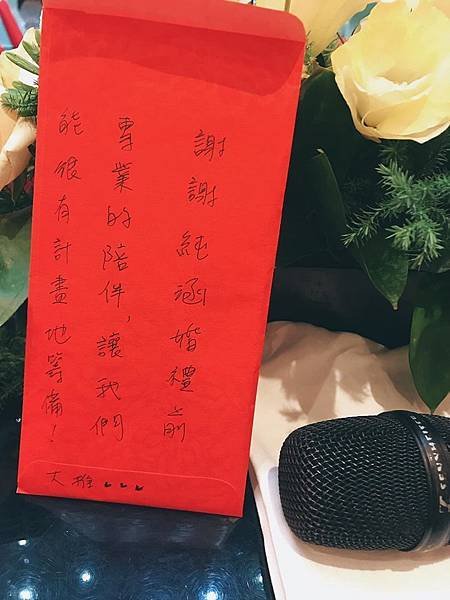 謝謝純涵婚禮前
專業的陪伴，讓我們
能很有計畫地籌備！
大推